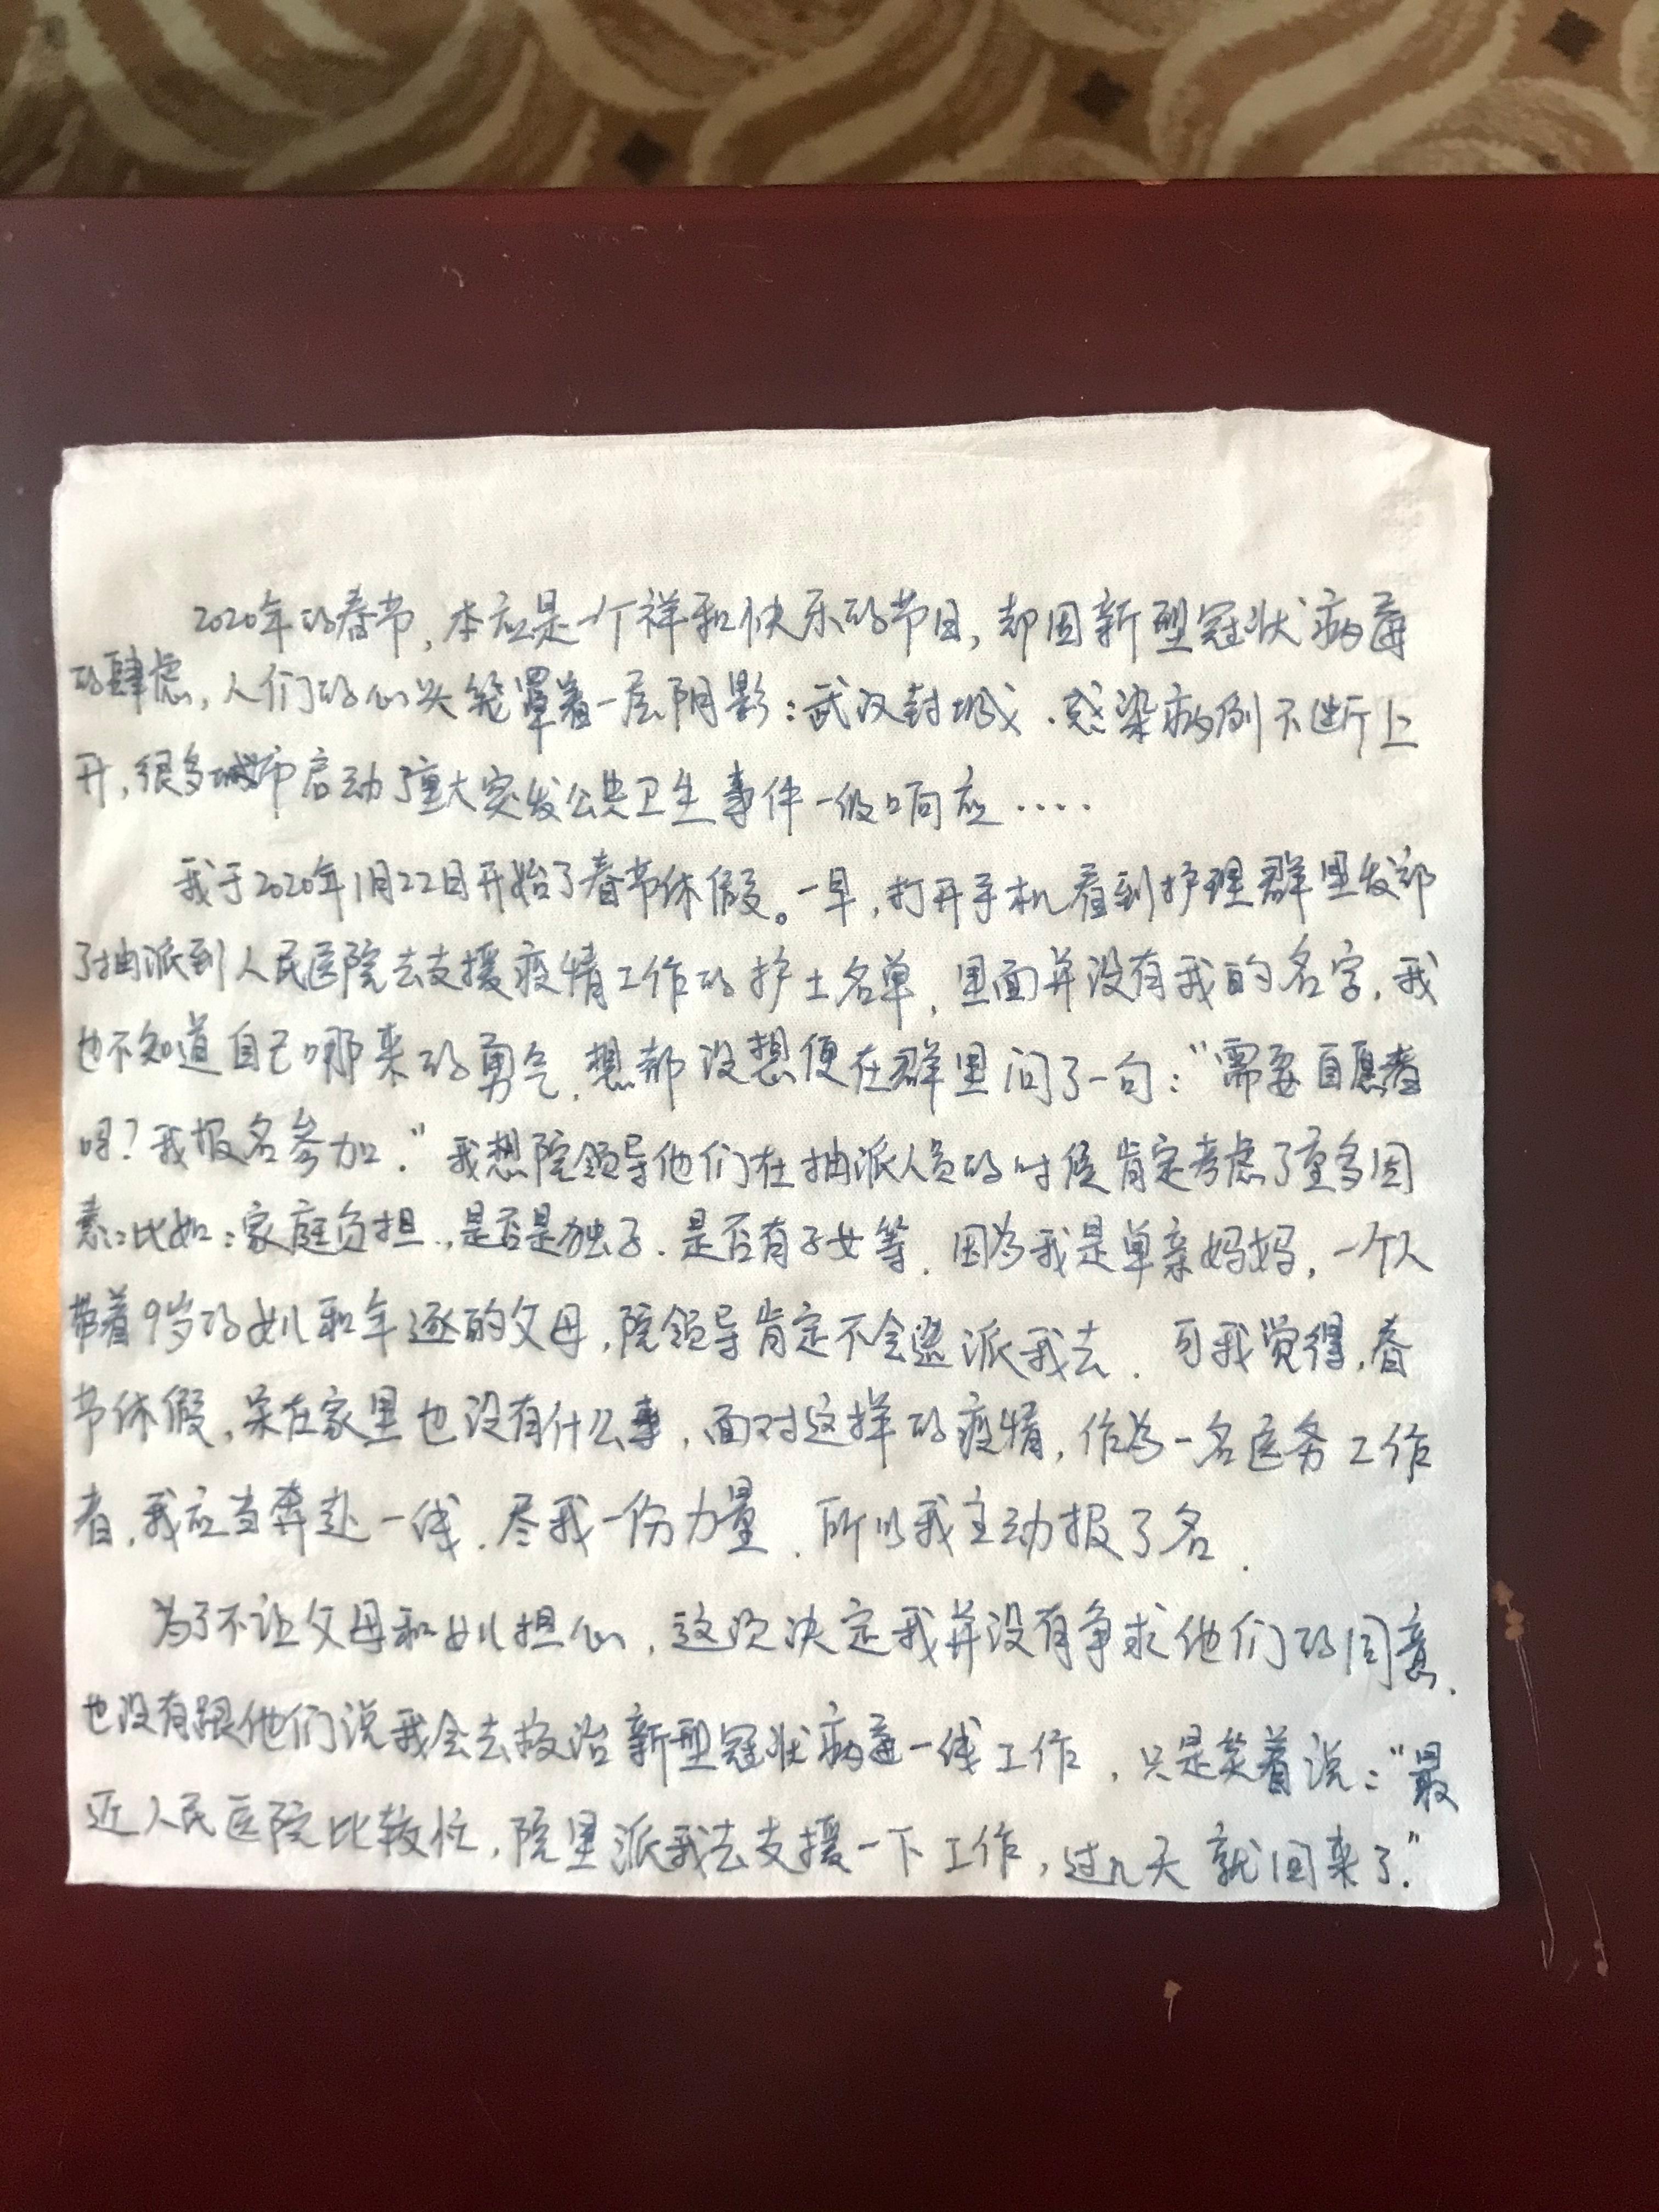 2020年的春节,本应是一个祥和快乐的节日,却因新型冠状病毒
的肆虐,人们的心头笼罩着一层阴影:武汉封城、感染病例不断上
升,很多城市启动了重大突发公共卫生事件一级响应....
我于2020年1月22日开始了春节休假。一早,打开手机看到护理群里发部
了抽派到人民医院去支援疫情工作的护士名单,里面并没有我的名字,我
也不知道自己哪来的勇气,想都没想便在群里问了一句:"需要自愿者
吗?我报名参加."我想院领导他们在抽派人员的时候肯定考虑了重多因
素:比如:家庭负担、是否是独子、是否有子女等,因为我是单亲妈妈,一个人
带着9岁的女儿和年逐的父母,院领导肯定不会选派我去.可我觉得,春
节休假,呆在家里也没有什么事,面对这样的疫情,作为一名医务工作
者,我应当奔赴一线,尽我一份力量,所以我主动报了名.
为了不让父母和女儿担心,这次决定我并没有争求他们的同意,
也没有跟他们说我会去救治新型冠状病毒一线工作,只是笑着说:"最
近人民医院比较忙,院里派我去支援一下工作,过几天就回来了."